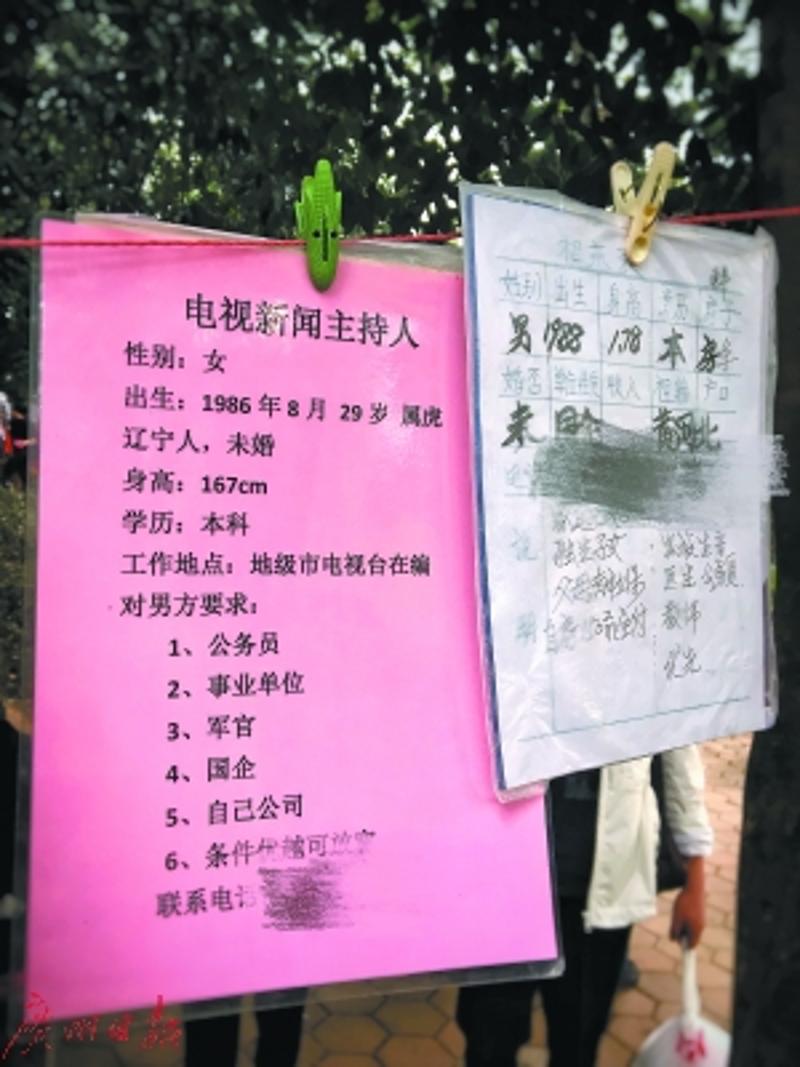 电视新闻主持人
性别：女
出生：1986年8月 29岁 属虎
辽宁人，未婚
身高：167cm
学历：本科
工作地点：地级市电视台在编
对男方要求：
1、公务员
2、事业单位
3、军官
4、国企
5、自己公司
6、条件优越可放宽
联系电话
相亲
性别 出生 身高 学历
男 1988 1.78 本
婚否 收入 户口
未
说 独生子女
明
医生 公务员
教师
优先
广州日报